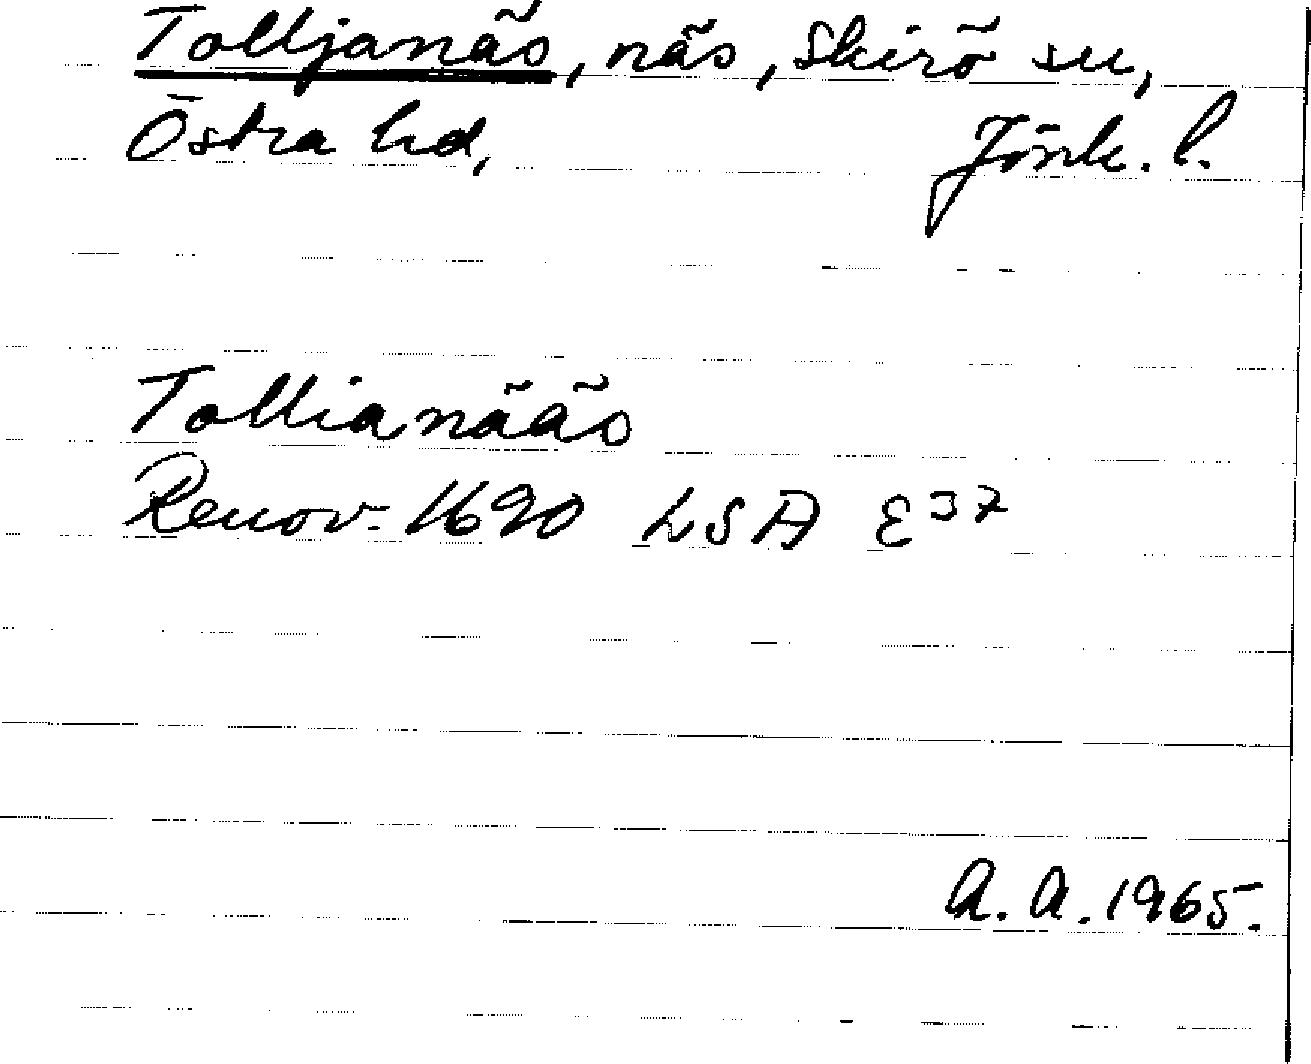 Tolljanäs, näs, Skirö sn,
Östra hd, Jönk. l.
Tollianääs
Renov. 1690 LSA E37
A. A. 1965.